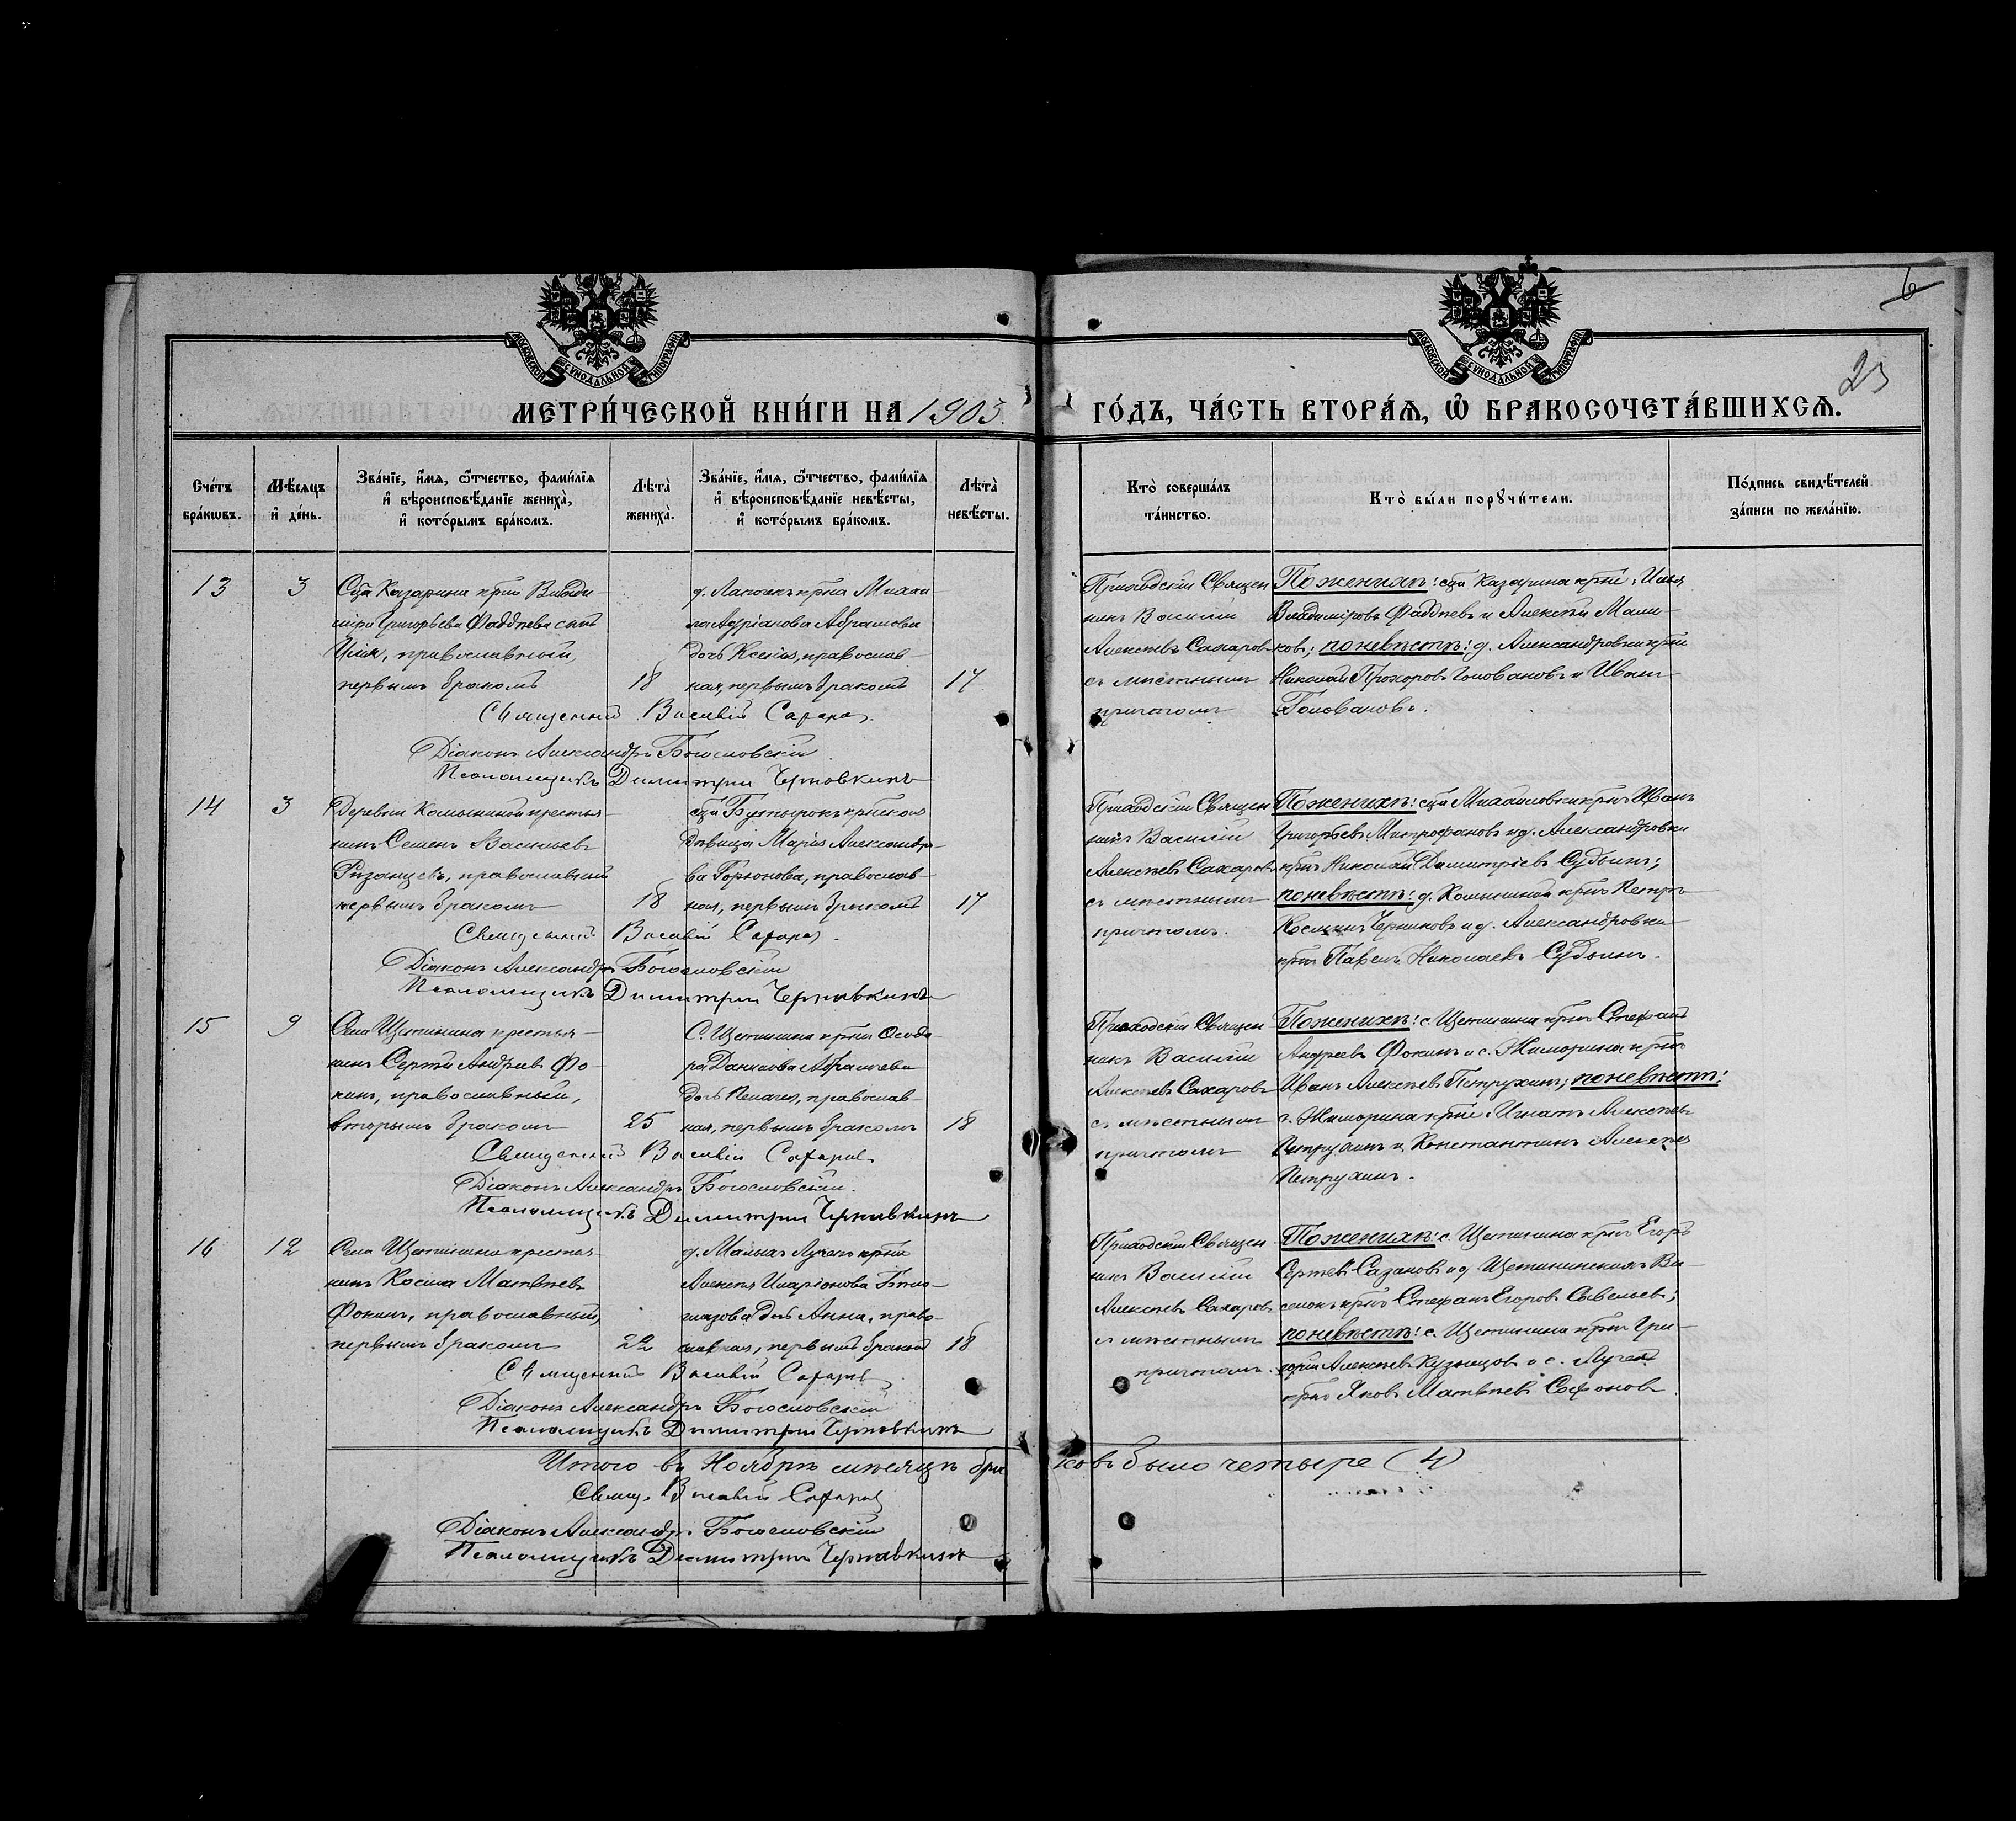 6
23
МОСКОВСКОЙ СѴНОДАЛЬНОЙ ТИПОГРАФІИ
МОСКОВСКОЙ СѴНОДАЛЬНОЙ ТИПОГРАФІИ
МЕТРИ́ЧЕСКОЙ КНИ́ГИ НА 1903 ГО́ДЪ, ЧА́СТЬ ВТОРА́Ѧ, Ѡ БРАКОСОЧЕТА́ВШИХСѦ.
Сче́тъ бра́кѡвъ.
Мѣ́сяцъ и҆ де́нь.
Зва́нїе, и҆́мѧ, ѻ҆́тчество, фами́лїѧ и҆ вѣроисповѣ́данїе жениха̀, и҆ кото́рымъ бра́комъ.
Лѣта̀ жениха̀.
Зва́нїе, и҆́мѧ, ѻ҆́тчество, фами́лїѧ и҆ вѣроисповѣ́данїе невѣ́сты, и҆ кото́рымъ бра́комъ.
Лѣта̀ невѣ́сты.
Кто̀ соверша́лъ та́инство.
Кто̀ бы́ли порꙋчи́тели.
По́дпись свидѣ́телей за́писи по жела́нїю.
13
3
Сца Казарина крнъ Влади-
міра Григорьева Фаддѣева сынъ
Илія, православный,
первымъ бракомъ
18
крна Михаи-
ла Адріанова Абрамова
дочь Ксенія, православ-
ная, первымъ бракомъ
17
Приходскій Священ
никъ Василій
Алексѣевъ Сахаровъ
съ мѣстнымъ
причтомъ
По женихѣ: сца Казарина крне: Илья
Владиміровъ Фаддѣевъ и Алексѣй Мали-
ковъ; по невѣстѣ: д. Александровки крне
Николай Прохоровъ Головановъ и Иванъ
Головановъ.
Священникъ Василій Сахаровъ.
Діаконъ Александръ Богословскій
Псаломщикъ Димитрій Чернавкинъ
14
3
Деревни Комыниной крестья-
нинъ Семенъ Васильевъ
Рязанцевъ, православный
первымъ бракомъ
18
сца Бутырокъ крнская
дѣвица Марія Александро-
ва Горюнова, православ-
ная, первымъ бракомъ
17
Приходскій Священ
никъ Василій
Алексѣевъ Сахаровъ
съ мѣстнымъ
причтомъ.
По женихѣ: сца Михайловки крнъ Иванъ
Григорьевъ Митрофановъ и д. Александровки
крнъ Николай Димитріевъ Судьинъ;
по невѣстѣ: д. Комыниной крнъ Петръ
Косминъ Черниковъ и д. Александровки
крнъ Павелъ Николаевъ Судьинъ.
Священникъ Василій Сахаровъ.
Діаконъ Александръ Богословскій
Псаломщикъ Димитрій Чернавкинъ
15
9
Села Щетинина крестья-
нинъ Сергѣй Андреевъ Фо-
кинъ, православный,
вторымъ бракомъ
25
С. Щетинина крна Ѳеодо-
ра Данилова
дочь Пелагея, православ-
ная, первымъ бракомъ
18
Приходскій Священ
никъ Василій
Алексѣевъ Сахаровъ
съ мѣстнымъ
причтомъ
По женихѣ: с. Щетинина крнъ Стефанъ
Андреевъ Фокинъ и с. Жиморина крнъ
Иванъ Алексѣевъ Петрухинъ; по невѣстѣ:
с. Жиморина крне: Игнатъ Алексѣевъ
Петрухинъ и Константинъ Алексѣевъ
Петрухинъ.
Священникъ Василій Сахаровъ
Діаконъ Александръ Богословскій.
Псаломщикъ Димитрій Чернавкинъ
16
12
Села Щетинина крестья-
нинъ Косма Матвѣевъ
Фокинъ, православный,
первымъ бракомъ
22
д. Малыхъ Лучекъ крна
Алексѣя Иларіонова Бѣло-
глазова дочь Анна, право-
славная, первымъ бракомъ
18
Приходскій Священ
никъ Василій
Алексѣевъ Сахаровъ
съ мѣстнымъ
причтомъ.
По женихѣ: с. Щетинина крнъ Егоръ
Сергѣевъ Сазановъ и д. Щетининскихъ Вы-
селокъ крнъ Стефанъ Егоровъ Савельевъ;
по невѣстѣ: с. Щетинина крнъ Гри-
горій Алексѣевъ Кузнецовъ и с. Лучекъ
крнъ Яковъ Матвѣевъ Сафоновъ
Священникъ Василій Сахаровъ
Діаконъ Александръ Богословскій
Псаломщикъ Димитрій Чернавкинъ
Итого въ Ноябрѣ мѣсяцѣ браковъ было четыре (4)
Свящ. Василій Сахаровъ
Діаконъ Александръ Богословскій
Псаломщикъ Димитрій Чернавкинъ